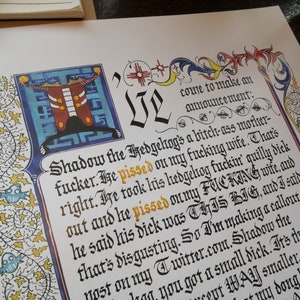 I've
come to make an
announcement:
Shadow the Hedgehog's a bitch-ass mother
fucker. He pissed on my fucking wife. That's
right. He took his hedgehog fuckin' quilly dick
out and he pissed on my FUCKING wife and
he said his dick was THIS BIG, and I said
that's disgusting. So I'm making a callout
post on my Twitter.com. Shadow the
you got a small dick. It's
WAY smaller